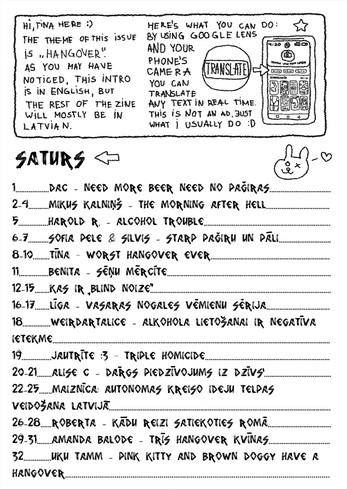 HI, TINA HERE :)
THE THEME OF THIS ISSUE
IS „HANGOVER".
AS YOU MAY HAVE
NOTICED, THIS INTRO
IS IN ENGLISH, BUT
THE REST OF THE ZINE
WILL MOSTLY BE IN
LATVIAN.
HERE'S WHAT YOU CAN DO:
BY USING GOOGLE LENS
AND YOUR
PHONE'S
CAMERA
YOU CAN
TRANSLATE
ANY TEXT IN REAL TIME.
THIS IS NOT AN AD, JUST
WHAT I USUALLY DO :D
TRANSLATE
SATURS
1______DAC - NEED MORE BEER NEED NO PAĢIRAS
2-4______MIKUS KALNIŅŠ - THE MORNING AFTER HELL
5______HAROLD R. - ALCOHOL TROUBLE
6-7______SOFIA PELE & SILVIS - STARP PAĢIRU UN PĀLI
8-10______TĪNA - WORST HANGOVER EVER
11______BENITA - SĒŅU MĒRCĪTE
12-15______KAS IR „BLIND NOIZE"
16-17______LĪGA - VASARAS NOGALES VĒMIENU SĒRIJA
18______WEIRDARTALICE - ALKOHOLA LIETOŠANAI IR NEGATĪVA
IETEKME
19______JAUTRĪTE :3 - TRIPLE HOMICIDE
20-21______ALISE C - DAŅGS PIEDZĪVOJUMS IZ DZĪVS
22-25______MAIZNĪCA: AUTONOMAS KREISO IDEJU TELPAS
VEIDOŠANA LATVIJĀ
26-28______ROBERTA - KĀDU REIZI SATIEKOTIES ROMĀ
29-31______AMANDA BALODE - TRĪS HANGOVER KVĪNAS
32______UKU TAMM - PINK KITTY AND BROWN DOGGY HAVE A
HANGOVER